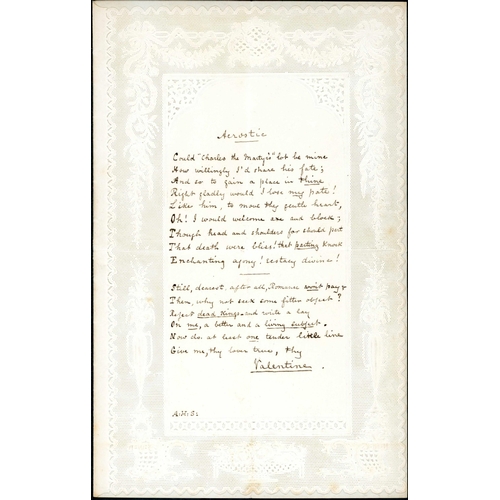 Acrostic
Could "Charles the Martyr's" lot be mine
How willingly I'd share his fate;
And so to gain a place in thine
Right gladly would I lose my pate!
Like him, to move thy gentle heart,
Oh! I would welcome axe and block;
Though head and shoulders far should part
That death were bliss! that parting knock
Enchanting agony! ecstacy divine!
Still, dearest, after all, Romance won't pay &
Then, why not seek some fitter object?
Reject dead Kings and write a lay
On me, a better and a living subject.
Now do. at least one tender little line
Give me, thy lover true, thy
Valentine.
A.H.S: